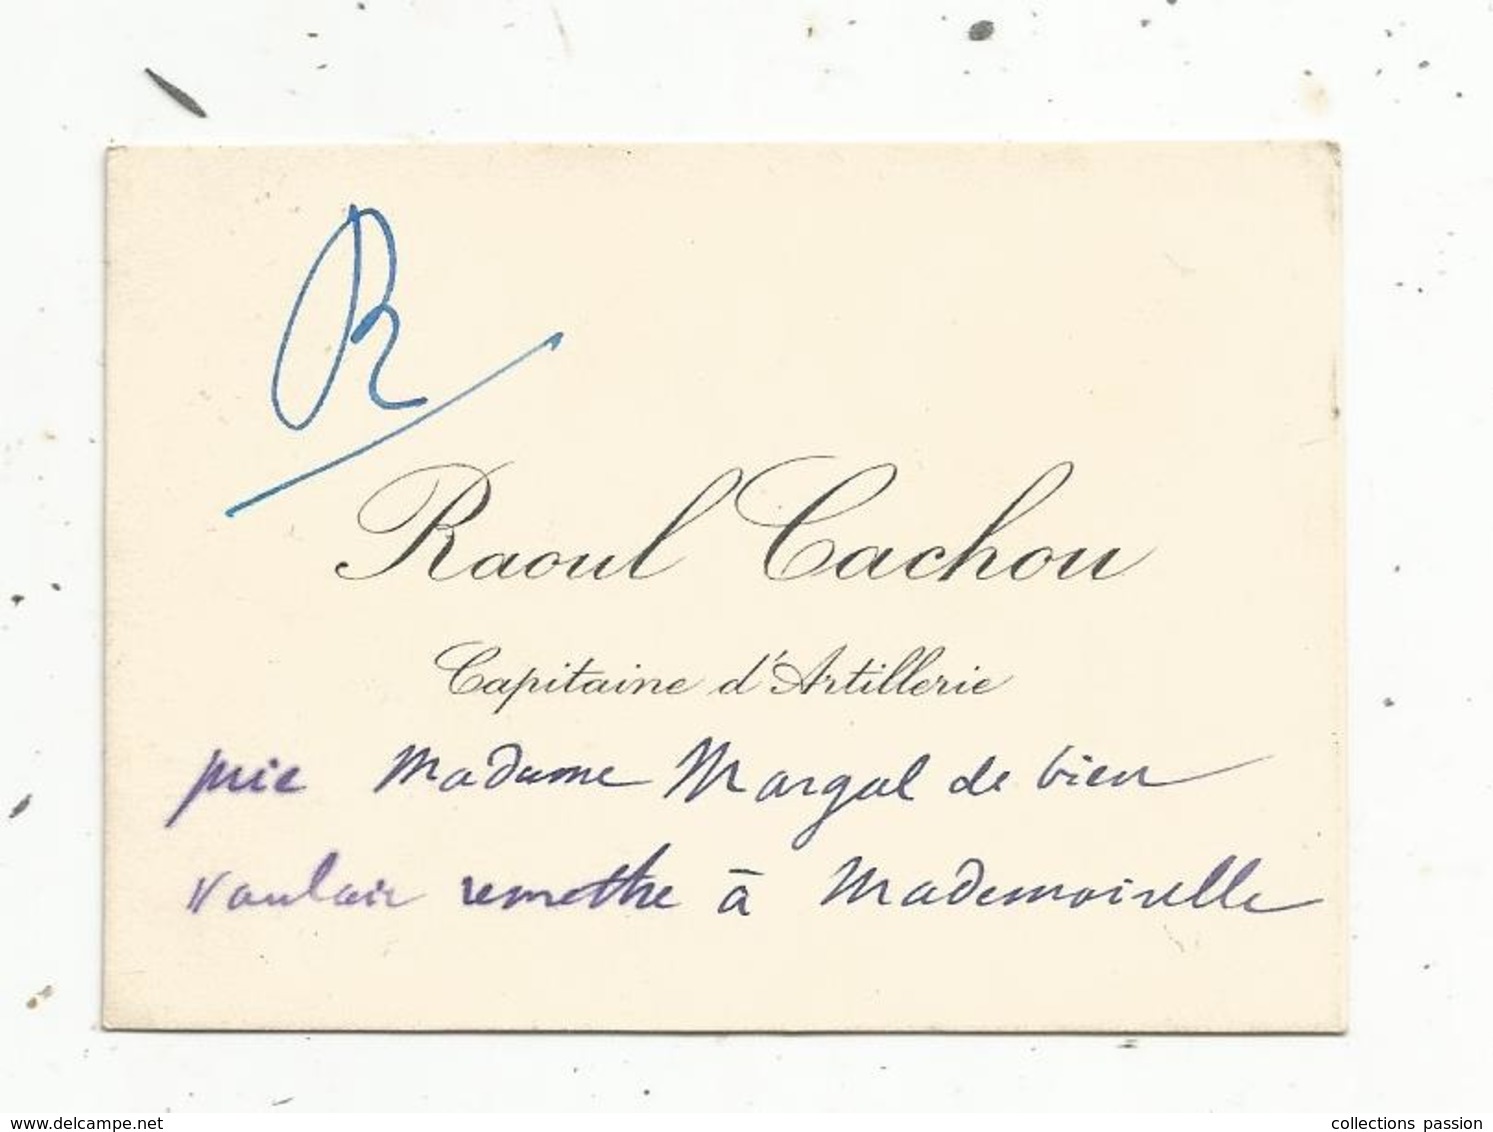 R
Raoul Cachou
Capitaine d'Artillerie
prie Madame Margal de bien
vouloir remettre à Mademoiselle
www.delcampe.net
collections passion